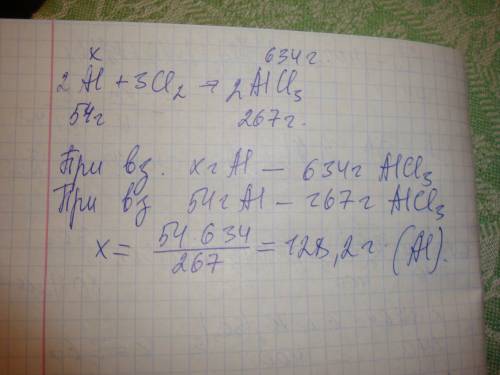 x 634 г.
2Al + 3Cl₂ → 2AlCl₃
54г 267 г.
При вз. xг Al — 634г AlCl₃
При вз 54г Al — 267г AlCl₃
x = 54 634 / 267 = 128,2 г (Al).